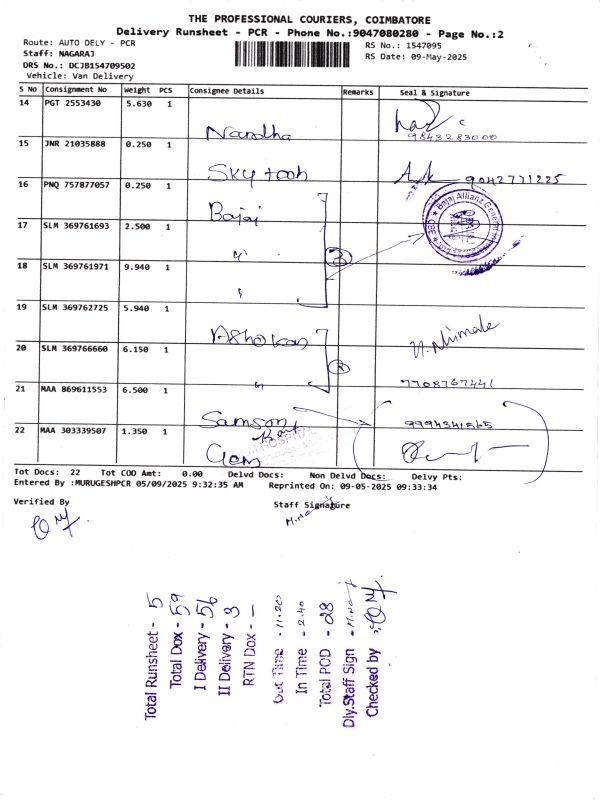 THE PROFESSIONAL COURIERS, COIMBATORE
Delivery Runsheet - PCR - Phone No.:9047080280 - Page No.:2
Route: AUTO DELY - PCR
Staff: NAGARAJ
DRS No.: DCJB154709502
Vehicle: Van Delivery
RS No.: 1547095
RS Date: 09-May-2025
S No Consignment No Weight PCS Consignee Details Remarks Seal & Signature
14 PGT 2553430 5.630 1 Nandha 9843283000
15 JNR 21035888 0.250 1 Sky tooth 9042771225
16 PNQ 757877057 0.250 1 Bajaj
Bajaj Allianz General
17 SLM 369761693 2.500 1 "
3
18 SLM 369761971 9.940 1 "
19 SLM 369762725 5.940 1 Ashokan
20 SLM 369766660 6.150 1 " 7708767441
21 MAA 869611553 6.500 1 Samson 9994341565
HOSPITAL
22 MAA 303339507 1.350 1 Gem
Tot Docs: 22 Tot COD Amt: 0.00 Delvd Docs: Non Delvd Docs: Delvy Pts:
Entered By :MURUGESHPCR 05/09/2025 9:32:35 AM Reprinted On: 09-05-2025 09:33:34
Verified By
Staff Signature
Total Runsheet - 5
Total Dox - 59
I Delivery - 56
II Delivery - 3
RTN Dox - –
Out Time - 11.20
In Time - 2.40
Total POD - 28
Dly.Staff Sign -
Checked by :